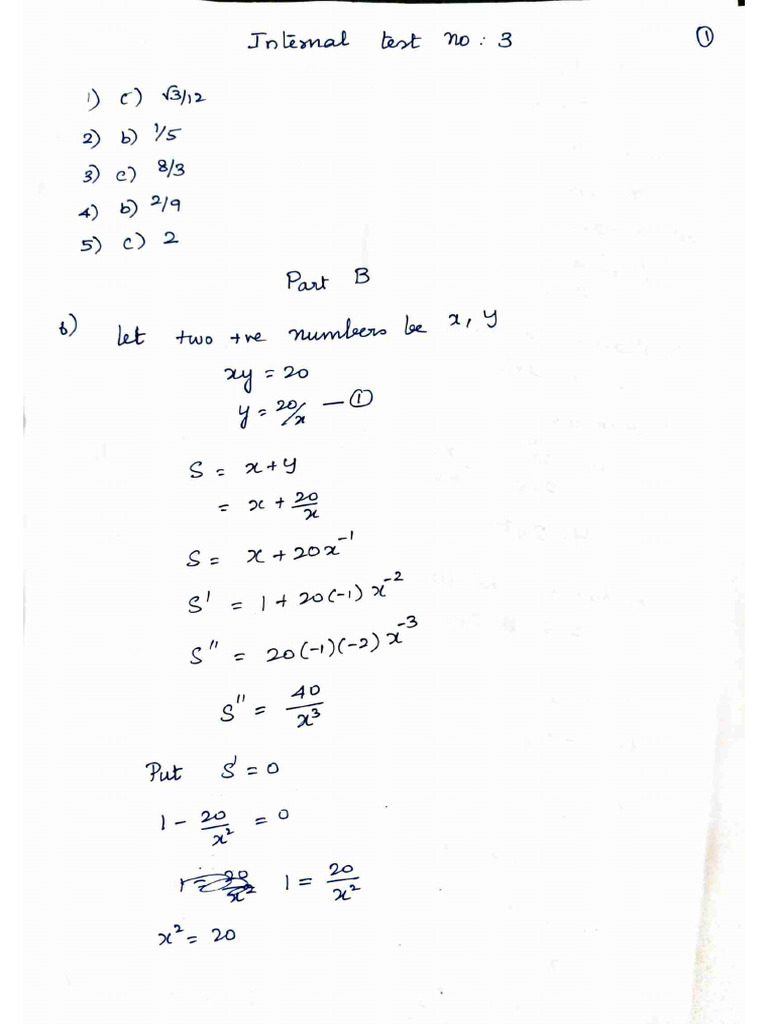 Internal test no: 3 ①
1) c) √3/12
2) b) 1/5
3) c) 8/3
4) b) 2/9
5) c) 2
Part B
6) let two +ve numbers be x, y
xy = 20
y = 20/x — ①
S = x + y
= x + 20/x
S = x + 20x⁻¹
S' = 1 + 20(-1) x⁻²
S'' = 20(-1)(-2) x⁻³
S'' = 40/x³
Put S' = 0
1 - 20/x² = 0
1 = 20/x²
x² = 20